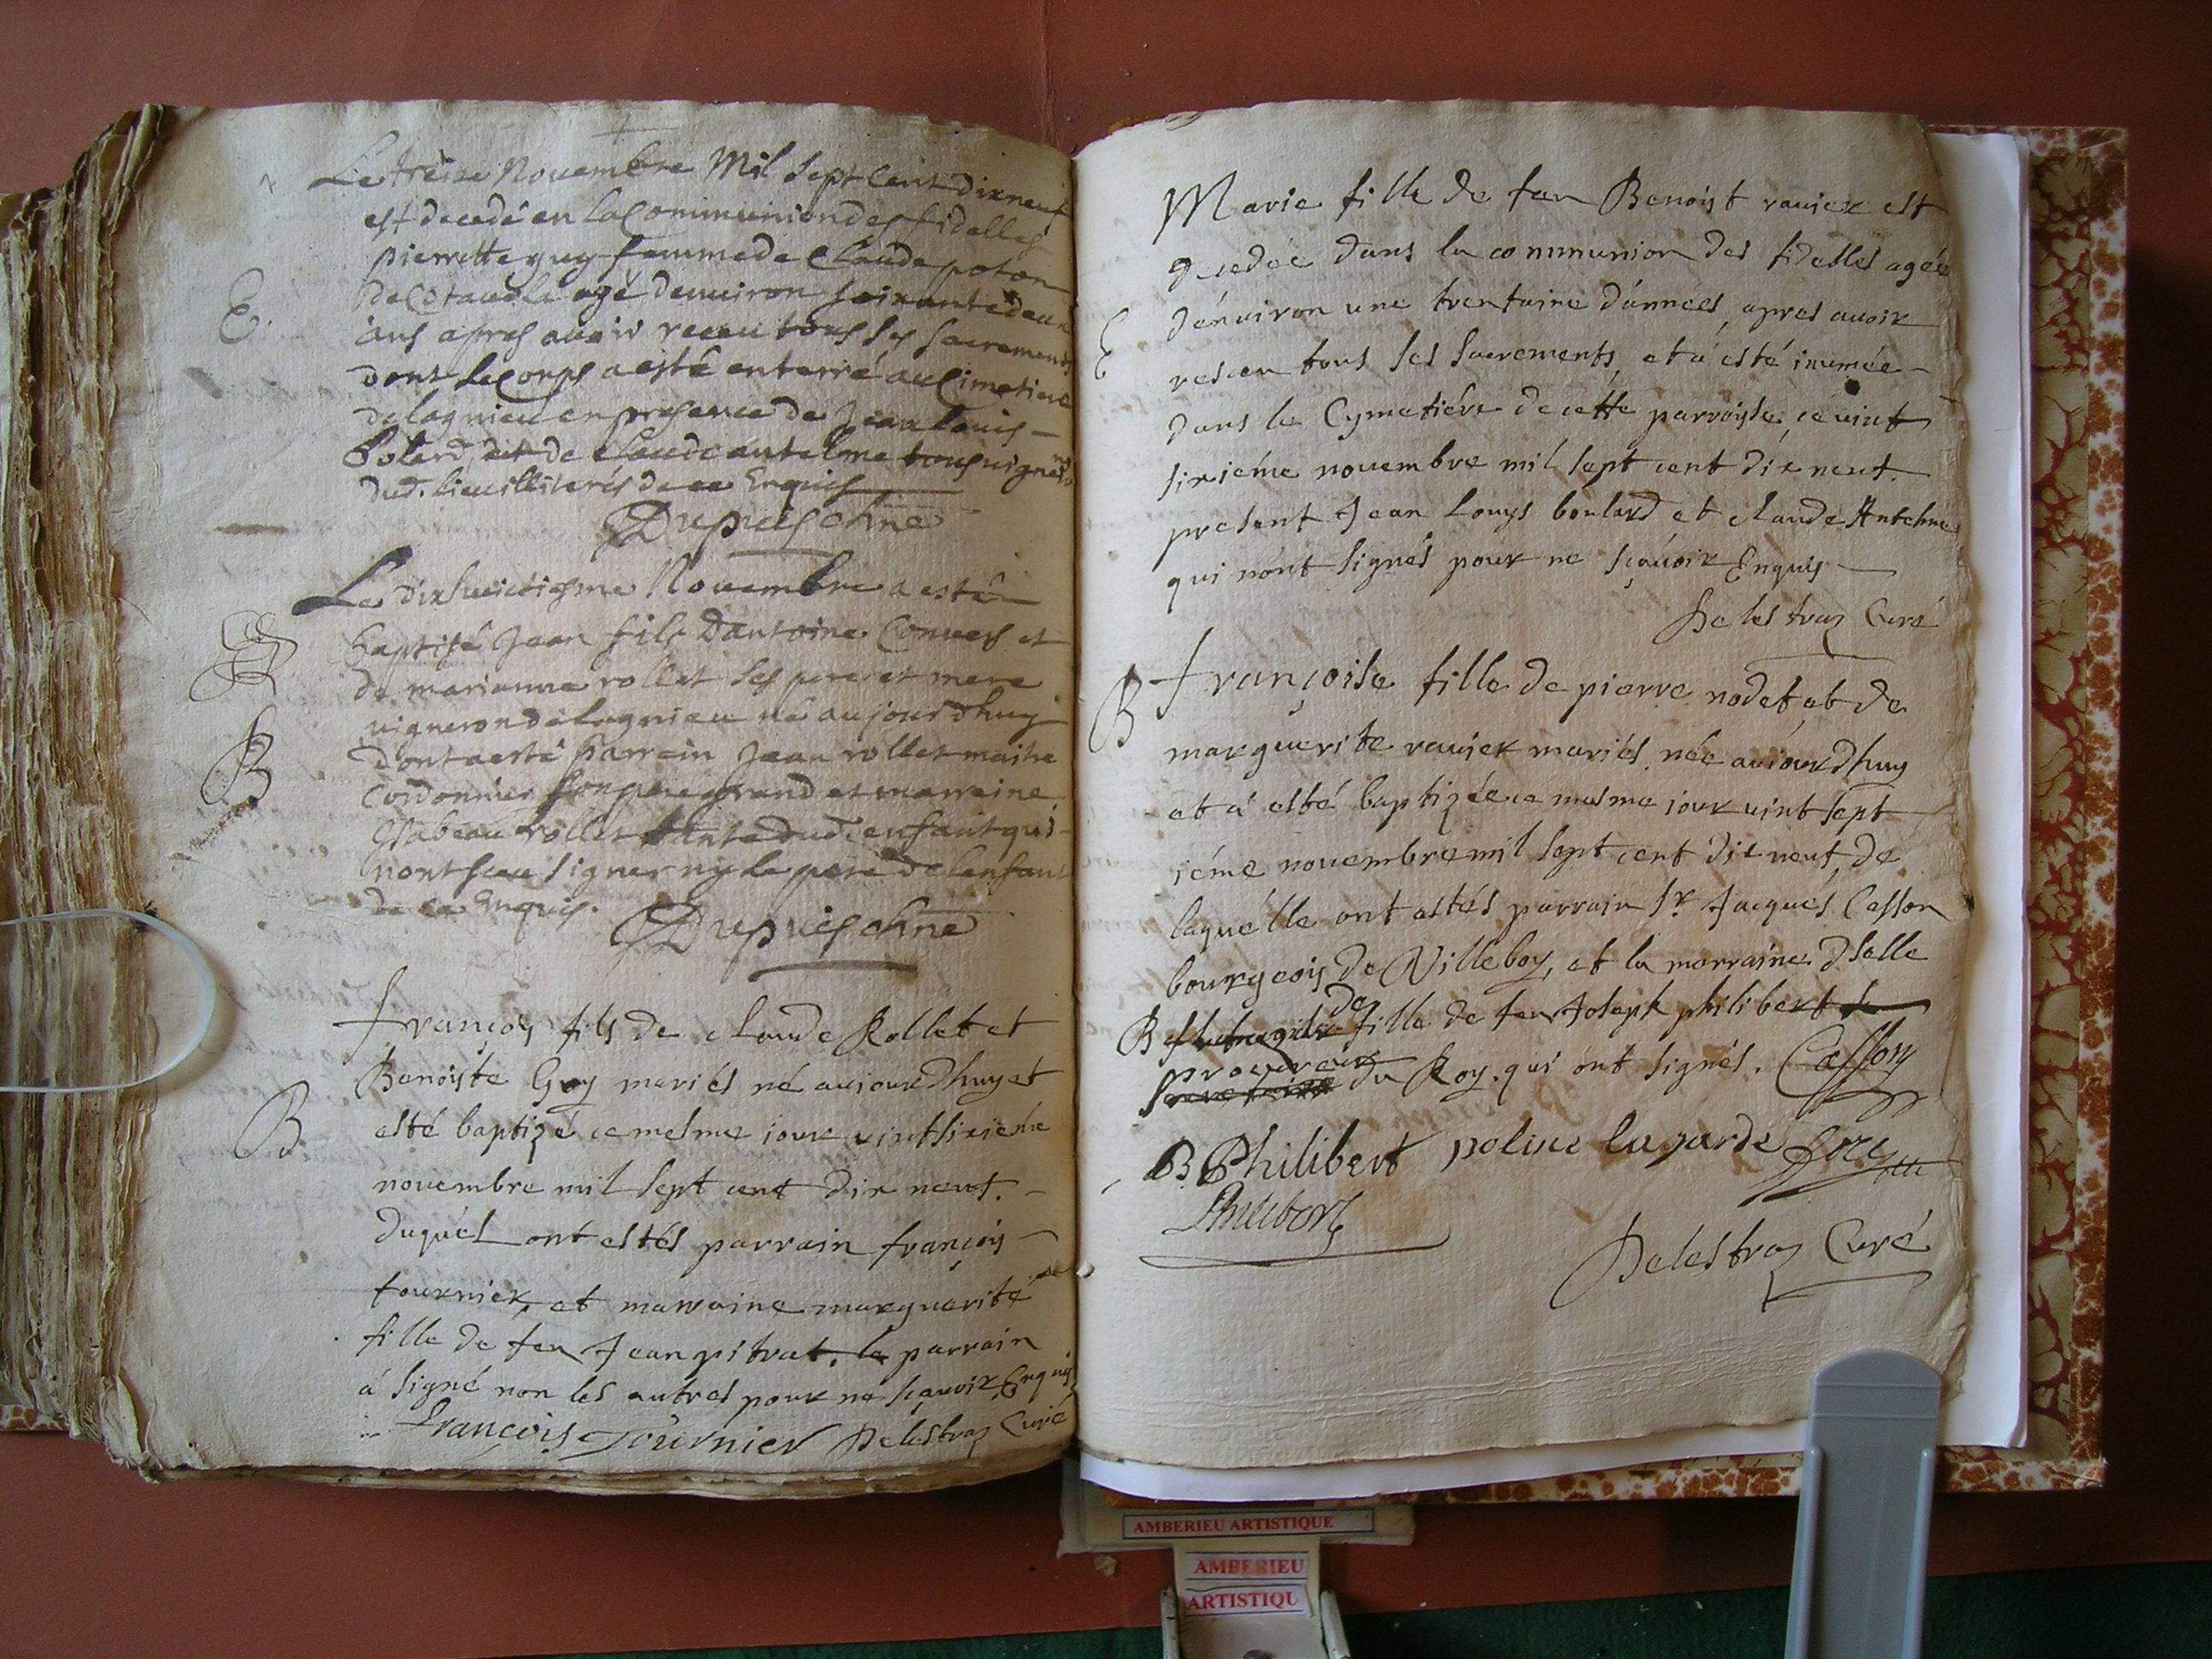 Le treize Novembre Mil Sept Cent dixneuf
est decedé en la Communion des fidelles
pierrette guy femme de Claude poton
agé denuiron soixante deux
ans apres auoir receu tous ses sacrements
dont le Corps a esté enterré au Cimetiere
de lagnieu en presence de Jean Louis
Bolard et de Claude antelme tous uignerons
dud. lieu illiterés de ce Enquis
E
Dupuis
Le dixhuictiesme Nouembre a esté
baptisé Jean fils Dantoine Conuers et
de marianne rollet ses pere et mere
uigneron de lagnieu né aujourdhuy
B
dont a esté parrain Jean rollet maitre
Cordonnier son pere grand et marraine
Esabeau rollet tante dud. enfant qui
nont sceu signer ny le pere de lenfant
de ce Enquis.
Dupuis
françois fils de claude Rollet et
Benoiste Guy mariés né auiourdhuy et
B
esté baptizé ce mesme iour uintsixiéme
nouembre mil sept cent dix neuf.
duquel ont estés parrain françois
fournier, et marraine marguerite
fille de feu Jean pitrat. le parrain
a signé non les autres pour ne sçauoir Enquis
françois Tournier Delestraz Curé
Marie fille de feu Benoist rauier est
decedée dans la communion des fidelles agée
d'énuiron une trentaine d'années, apres auoir
E
resceu tous ses sacrements, et a esté inumée
dans le Cymetiére de cette parroisse, ce uint
sixiéme nouembre mil sept cent dix neuf.
present Jean Louys boulard et claude Antelme
qui nont signés pour ne sçauoir Enquis
Delestraz Curé
B
françoise fille de pierre nodet et de
marguerite rauier mariés née auiourdhuy
et a esté baptizée ce mesme iour uint sept
iéme nouembre mil sept cent dix neuf, de
laquelle ont estés parrain Sr. Jacques Casson
bourgeois de Villeboy, et la marraine dselle
fille de feu Joseph philibert
procureur du Roy. qui ont signés. Casson
B. Philibert lagarde
Philibert
Delestraz Curé
AMBERIEU ARTISTIQUE
AMBERIEU
ARTISTIQU